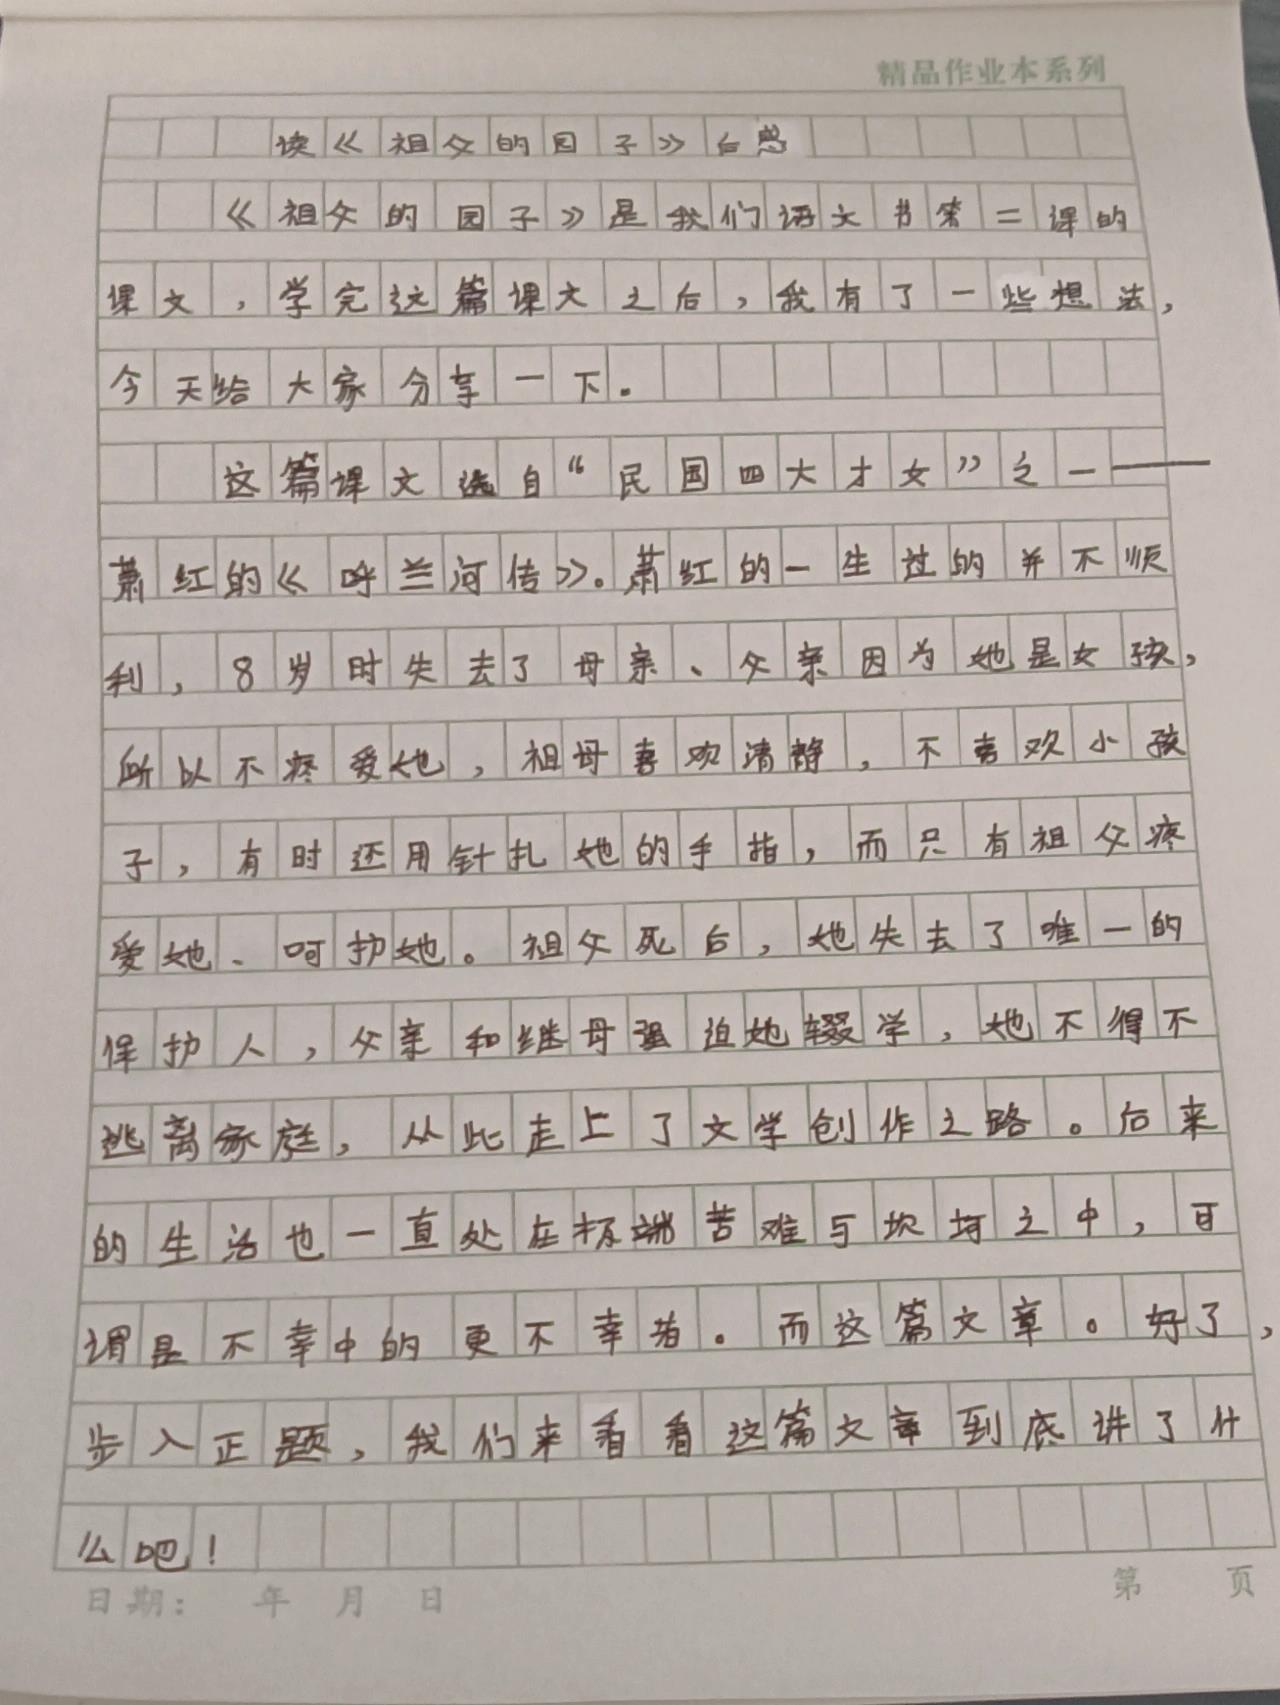 精品作业本系列
读《祖父的园子》后感
《祖父的园子》是我们语文书第二课的
课文，学完这篇课文之后，我有了一些想法，
今天给大家分享一下。
这篇课文选自“民国四大才女”之一——
萧红的《呼兰河传》。萧红的一生过的并不顺
利，8岁时失去了母亲、父亲因为她是女孩，
所以不疼爱她，祖母喜欢清静，不喜欢小孩
子，有时还用针扎她的手指，而只有祖父疼
爱她、呵护她。祖父死后，她失去了唯一的
保护人，父亲和继母强迫她辍学，她不得不
逃离家庭，从此走上了文学创作之路。后来
的生活也一直处在极端苦难与坎坷之中，可
谓是不幸中的更不幸者。而这篇文章。好了，
步入正题，我们来看看这篇文章到底讲了什
么吧！
日期： 年 月 日
第 页